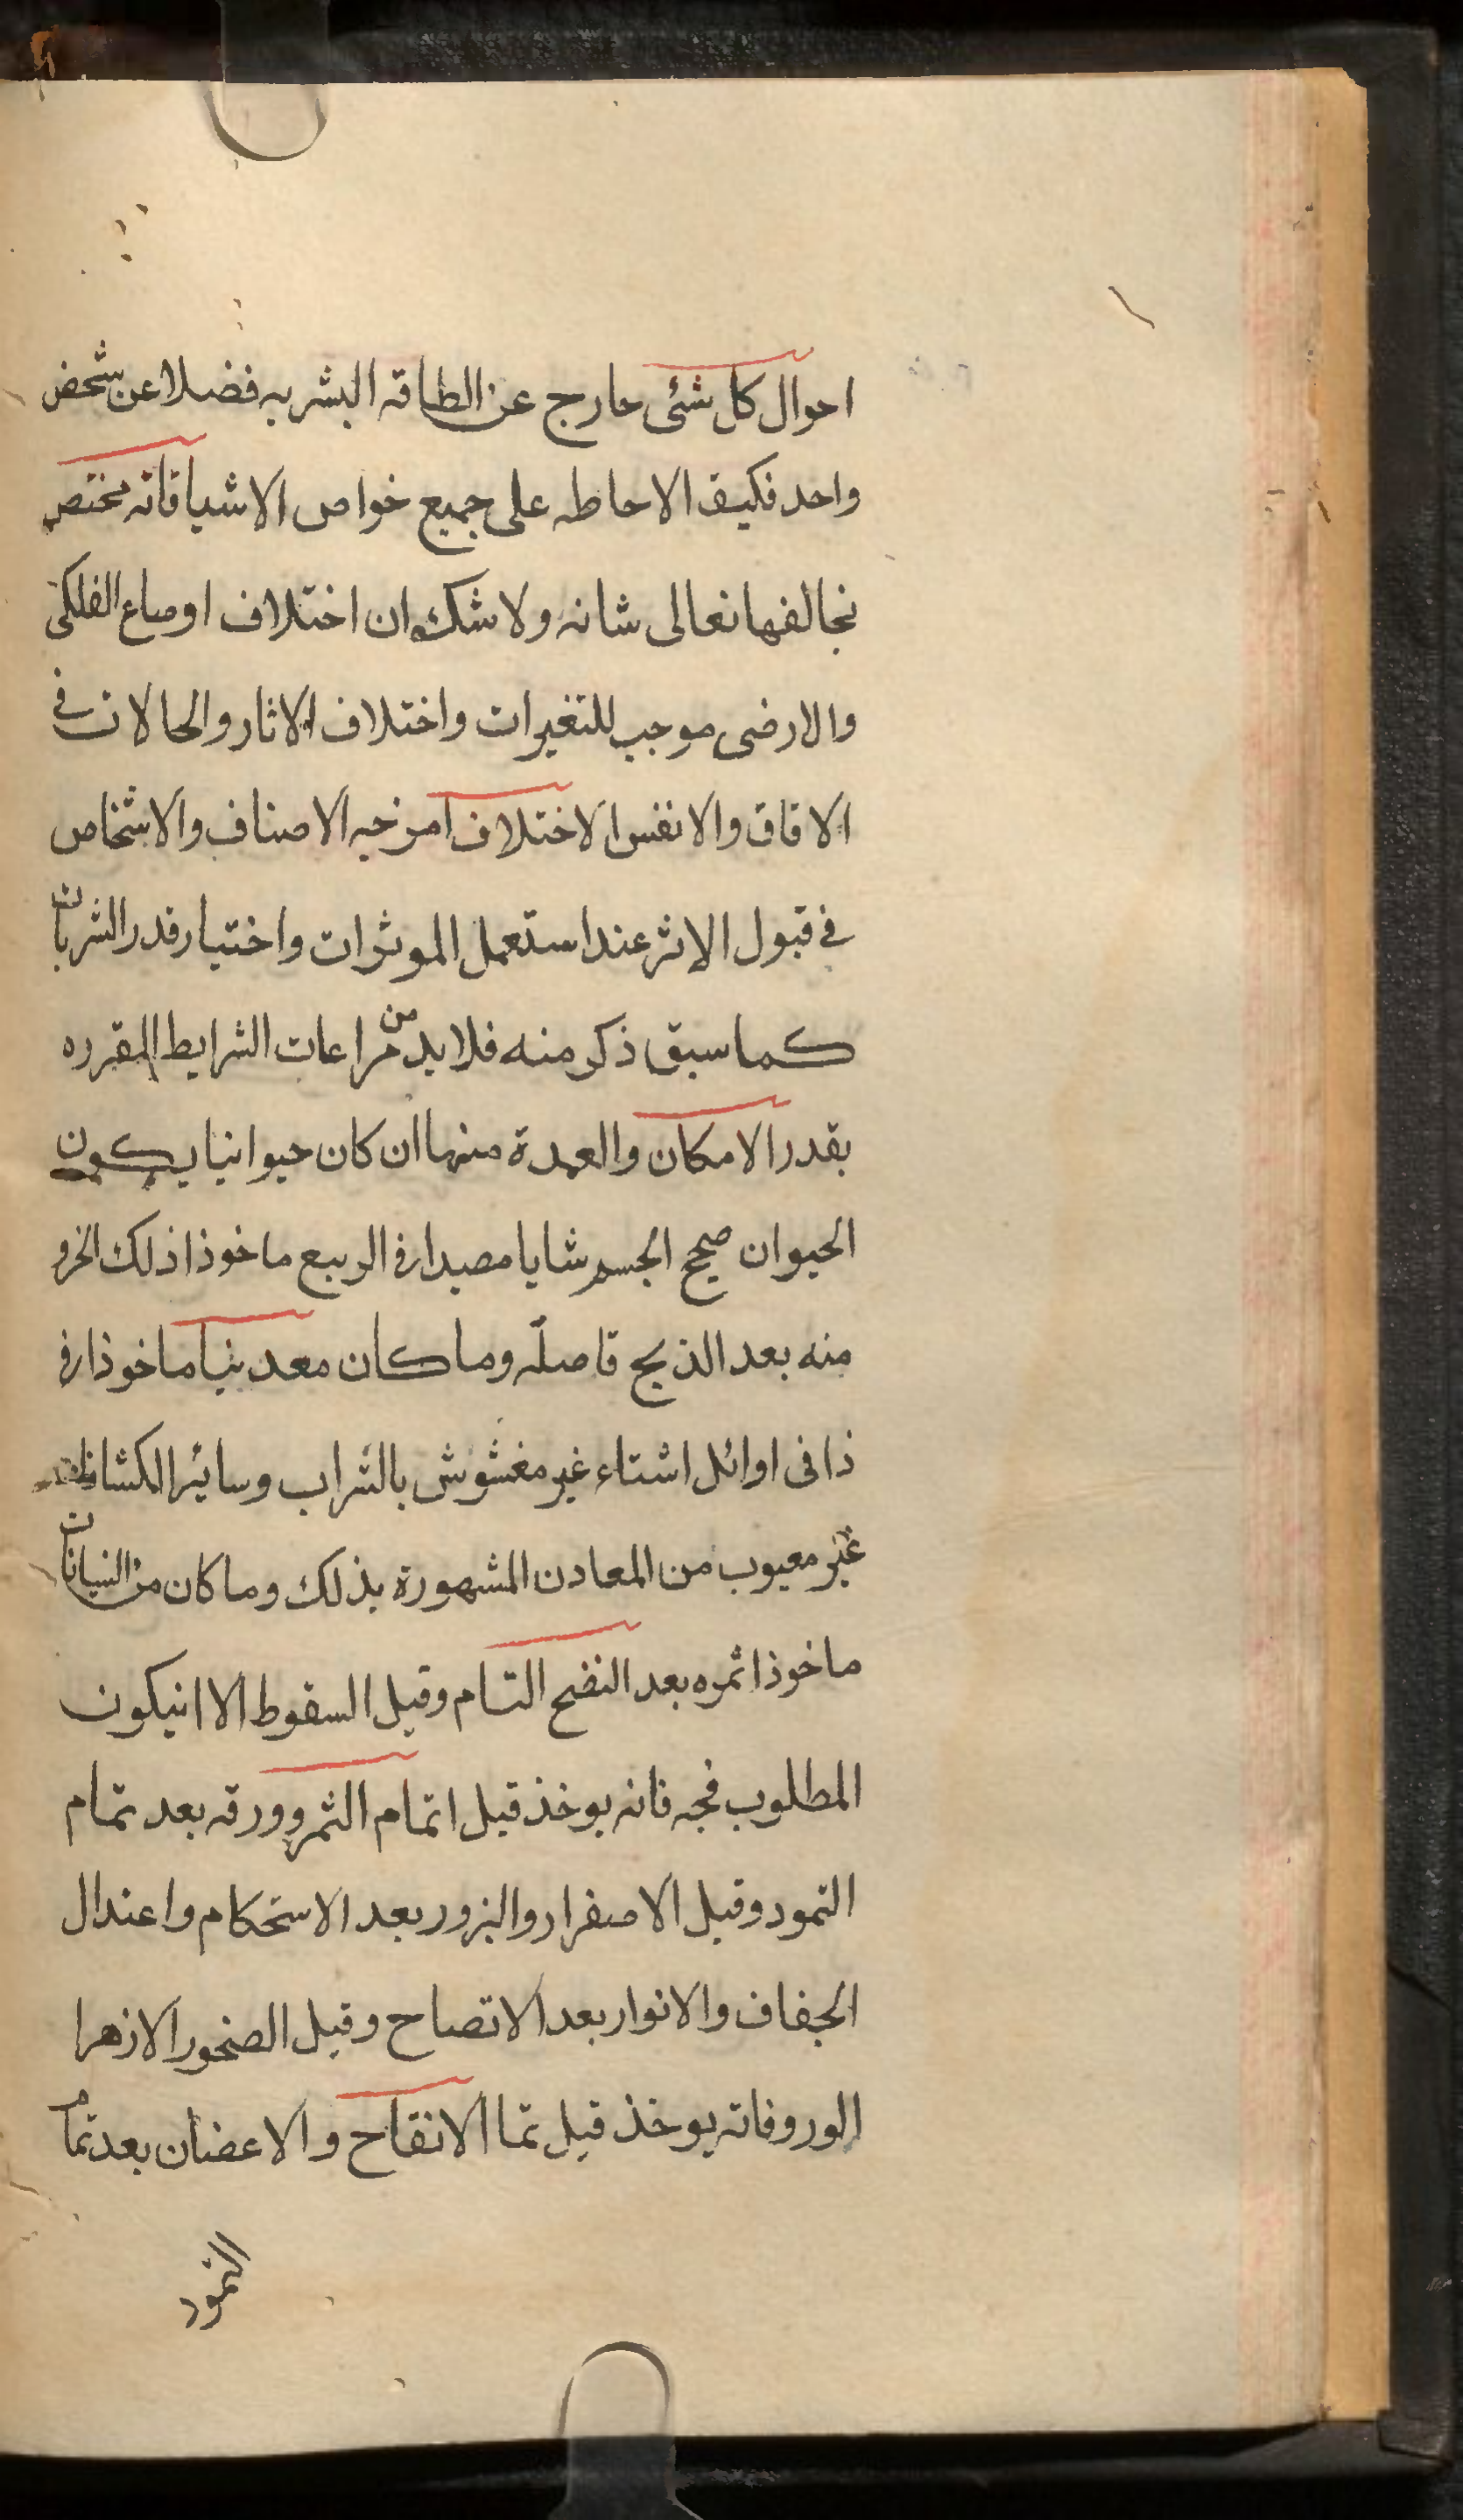 احوال كل شئى حارج عن الطاقه البشريه فضلا عن شخص
واحد فكيف الاحاطه على جميع خواص الاشيا فانه مختص
بخالفها تعالى شانه ولا شك ان اختلاف اوضاع الفلكى
والارضى موجب للتغيرات واختلاف الاثار والحالات فى
الافاق والانفس الاختلاف امزجه الاصناف والاشخاص
فى قبول الاثر عند استعمل الموثرات واختيار قدر الشربات
كما سبق ذكر منه فلا بد من مراعات الشرايط المقرره
بقدر الامكان والعمدة منها ان كان حيوانيا يكون
الحيوان صحيح الجسم شابا مصيدا فى الربيع ماخوذا ذلك الجزو
منه بعد الذبح فاصله وما كان معدنيا ماخوذا فى
ذا فى اوائل اشتاء غير مغشوش بالتراب وسائر
غير معيوب من المعادن المشهورة بذلك وما كان من النباتات
ماخوذا ثمره بعد النضج التام وقبل السقوط الا انيكون
المطلوب فجه فانه يوخذ قبل اتمام الثمر وورقه بعد تمام
النمود وقبل الاصفرار والبزور بعد الاستحكام واعتدال
الجفاف والانوار بعد الاتصاح وقبل الصخور الازهرا
الورو فانه يوخذ قبل تما الانقاح والاعضان بعد تمام
النمود